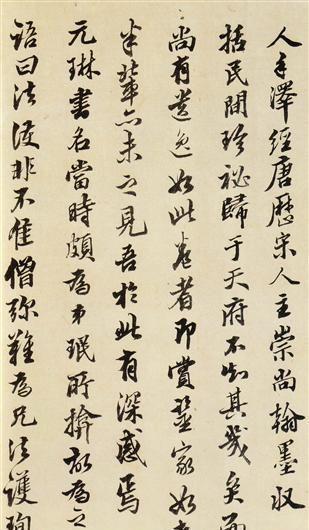 人手澤經唐歷宋人主崇尚翰墨收
括民間珍祕歸于天府不知其幾矣而
尚有遺逸如此卷者即賞鑒家如米
芾輩亦未之見吾於此有深感焉
元琳書名當時頗為弟珉所揜故為之
語曰法護非不佳僧彌難為兄法護珣